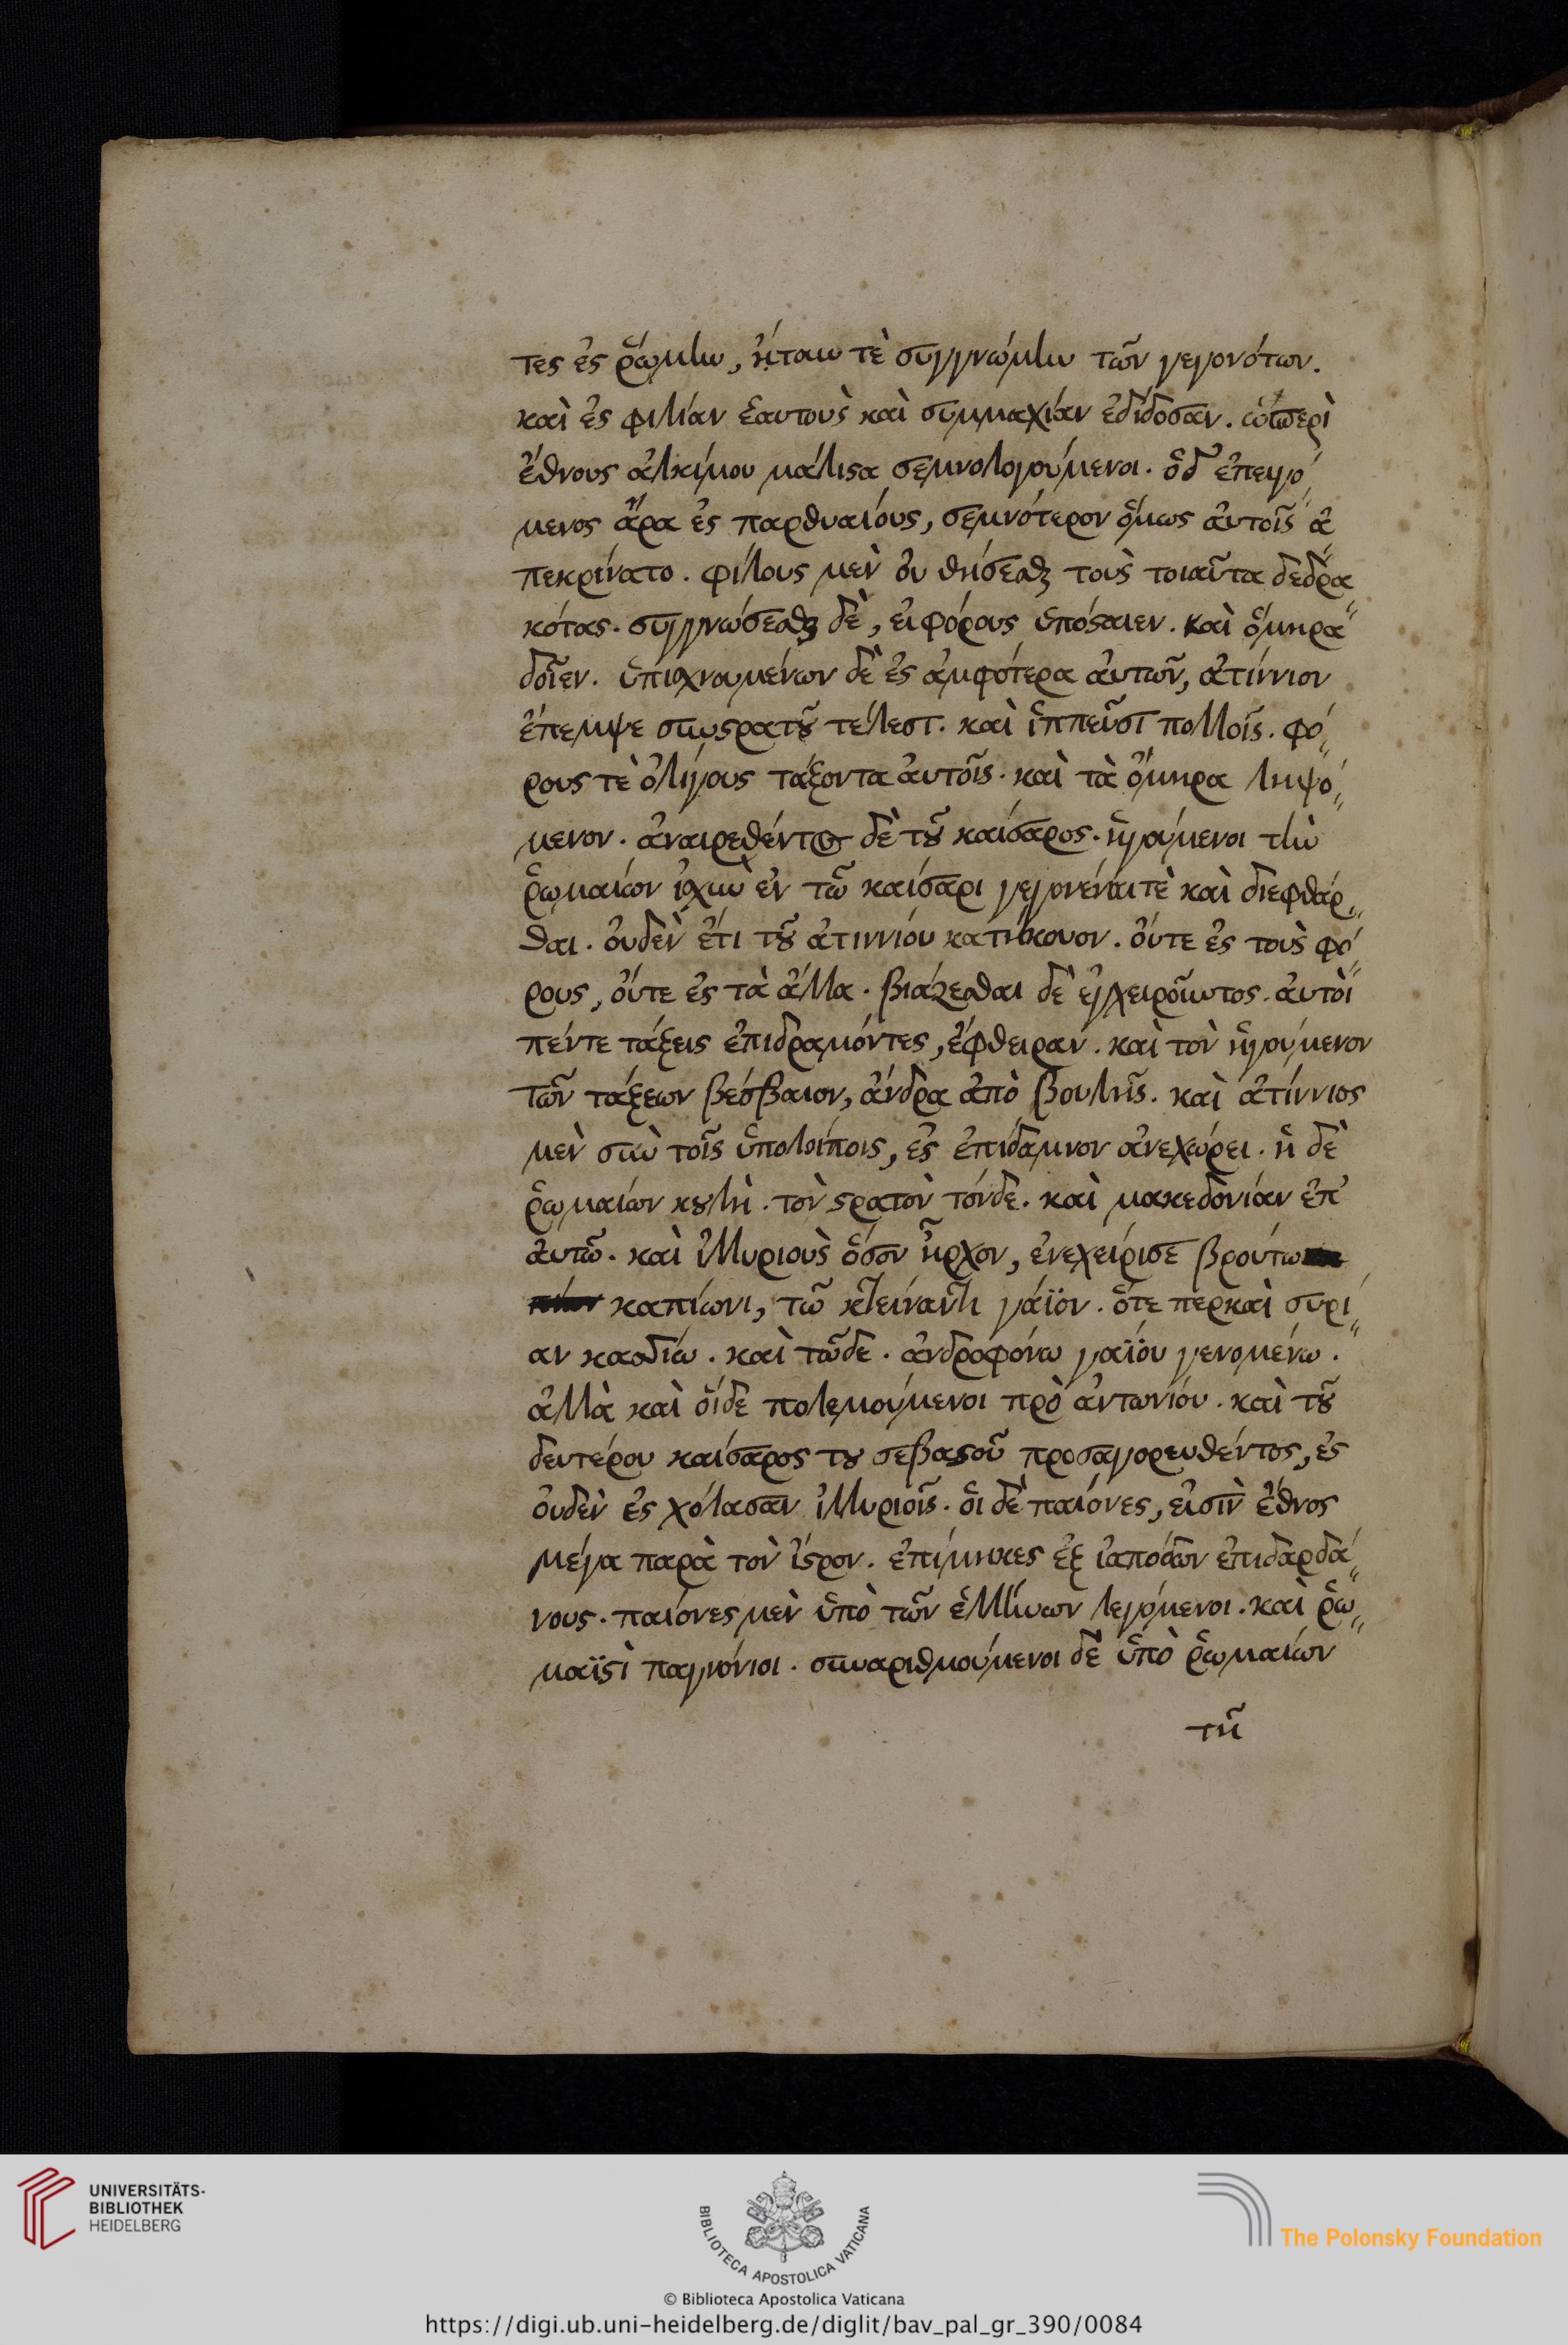 τες ἐς ῥώμην, ᾔτουν τὲ συγγνώμην τῶν γεγονότων.
καὶ ἐς φιλίαν ἑαυτοὺς καὶ συμμαχίαν ἐδίδοσαν. ὡς περὶ
ἔθνους ἀλκίμου μάλιστα σεμνολογούμενοι. ὁδ' ἐπειγό
μενος ἄρα ἐς παρθυαίους, σεμνότερον ὅμως ἀυτοῖς ἀ
πεκρίνατο. φίλους μὲν ὀυ θήσεσθαι τοὺς τοιαῦτα δεδρα
κότας. συγγνώσεσθαι δὲ, ἐι φόρους ὑπόσταιεν. καὶ ὅμηρα
δοῖεν. ὑπισχνουμένων δὲ ἐς ἀμφότερα ἀυτῶν, ἀτίννιον
ἔπεμψε σὺν στρατοῦ τέλεσι. καὶ ἱππεῦσι πολλοῖς. φό
ρους τὲ ὀλίγους τάξοντα ἀυτοῖς. καὶ τὰ ὅμηρα ληψό
μενον. ἀναιρεθέντος δὲ τοῦ καίσαρος. ἡγούμενοι τὴν
ῥωμαίων ἰσχὺν ἐν τῶ καίσαρι γεγονέναι τὲ καὶ διεφθάρ
θαι. ὀυδὲν ἔτι τοῦ ἀτιννίου κατήκουον. ὄυτε ἐς τοὺς φό
ρους, ὄυτε ἐς τὰ ἄλλα. βιάζεσθαι δὲ ἐγχειροῦντος. ἀυτοὶ
πέντε τάξεις ἐπιδραμόντες, ἔφθειραν. καὶ τὸν ἡγούμενον
τῶν τάξεων βέσβαιον, ἄνδρα ἀπὸ βουλῆς. καὶ ἀτίννιος
μὲν σὺν τοῖς ὑπολοίποις, ἐς ἐπίδαμνον ἀνεχώρει. ἡ δὲ
ῥωμαίων βουλὴ. τὸν στρατὸν τόνδε. καὶ μακεδονίαν ἐπ'
ἀυτῶ. καὶ ἰλλυριοὺς ὅσον ἦρχον, ἐνεχείρισε βρούτω
καπίωνι, τῶ κτείναντι γάϊον. ὅτε περ καὶ συρί
αν κασσίω. καὶ τῶδε. ἀνδροφόνω γαΐου γενομένω.
ἀλλὰ καὶ οἵδε πολεμούμενοι πρὸ ἀντωνίου. καὶ τοῦ
δευτέρου καίσαρος τοῦ σεβαστοῦ προσαγορευθέντος, ἐς
ὀυδὲν ἐς χόλασαν ἰλλυριοῖς. ὁι δὲ παίονες, ἐισὶν ἔθνος
μέγα παρὰ τὸν ἴστρον. ἐπίμηκες ἐξ ἰαπόδων ἐπιδαρδά
νους. παίονες μὲν ὑπὸ τῶν ἑλλήνων λεγόμενοι. καὶ ῥω
μαϊστὶ παννόνιοι. συναριθμούμενοι δὲ ὑπὸ ῥωμαίων
τῆ
UNIVERSITÄTS-
BIBLIOTHEK
HEIDELBERG
BIBLIOTECA APOSTOLICA VATICANA
The Polonsky Foundation
© Biblioteca Apostolica Vaticana
https://digi.ub.uni-heidelberg.de/diglit/bav_pal_gr_390/0084